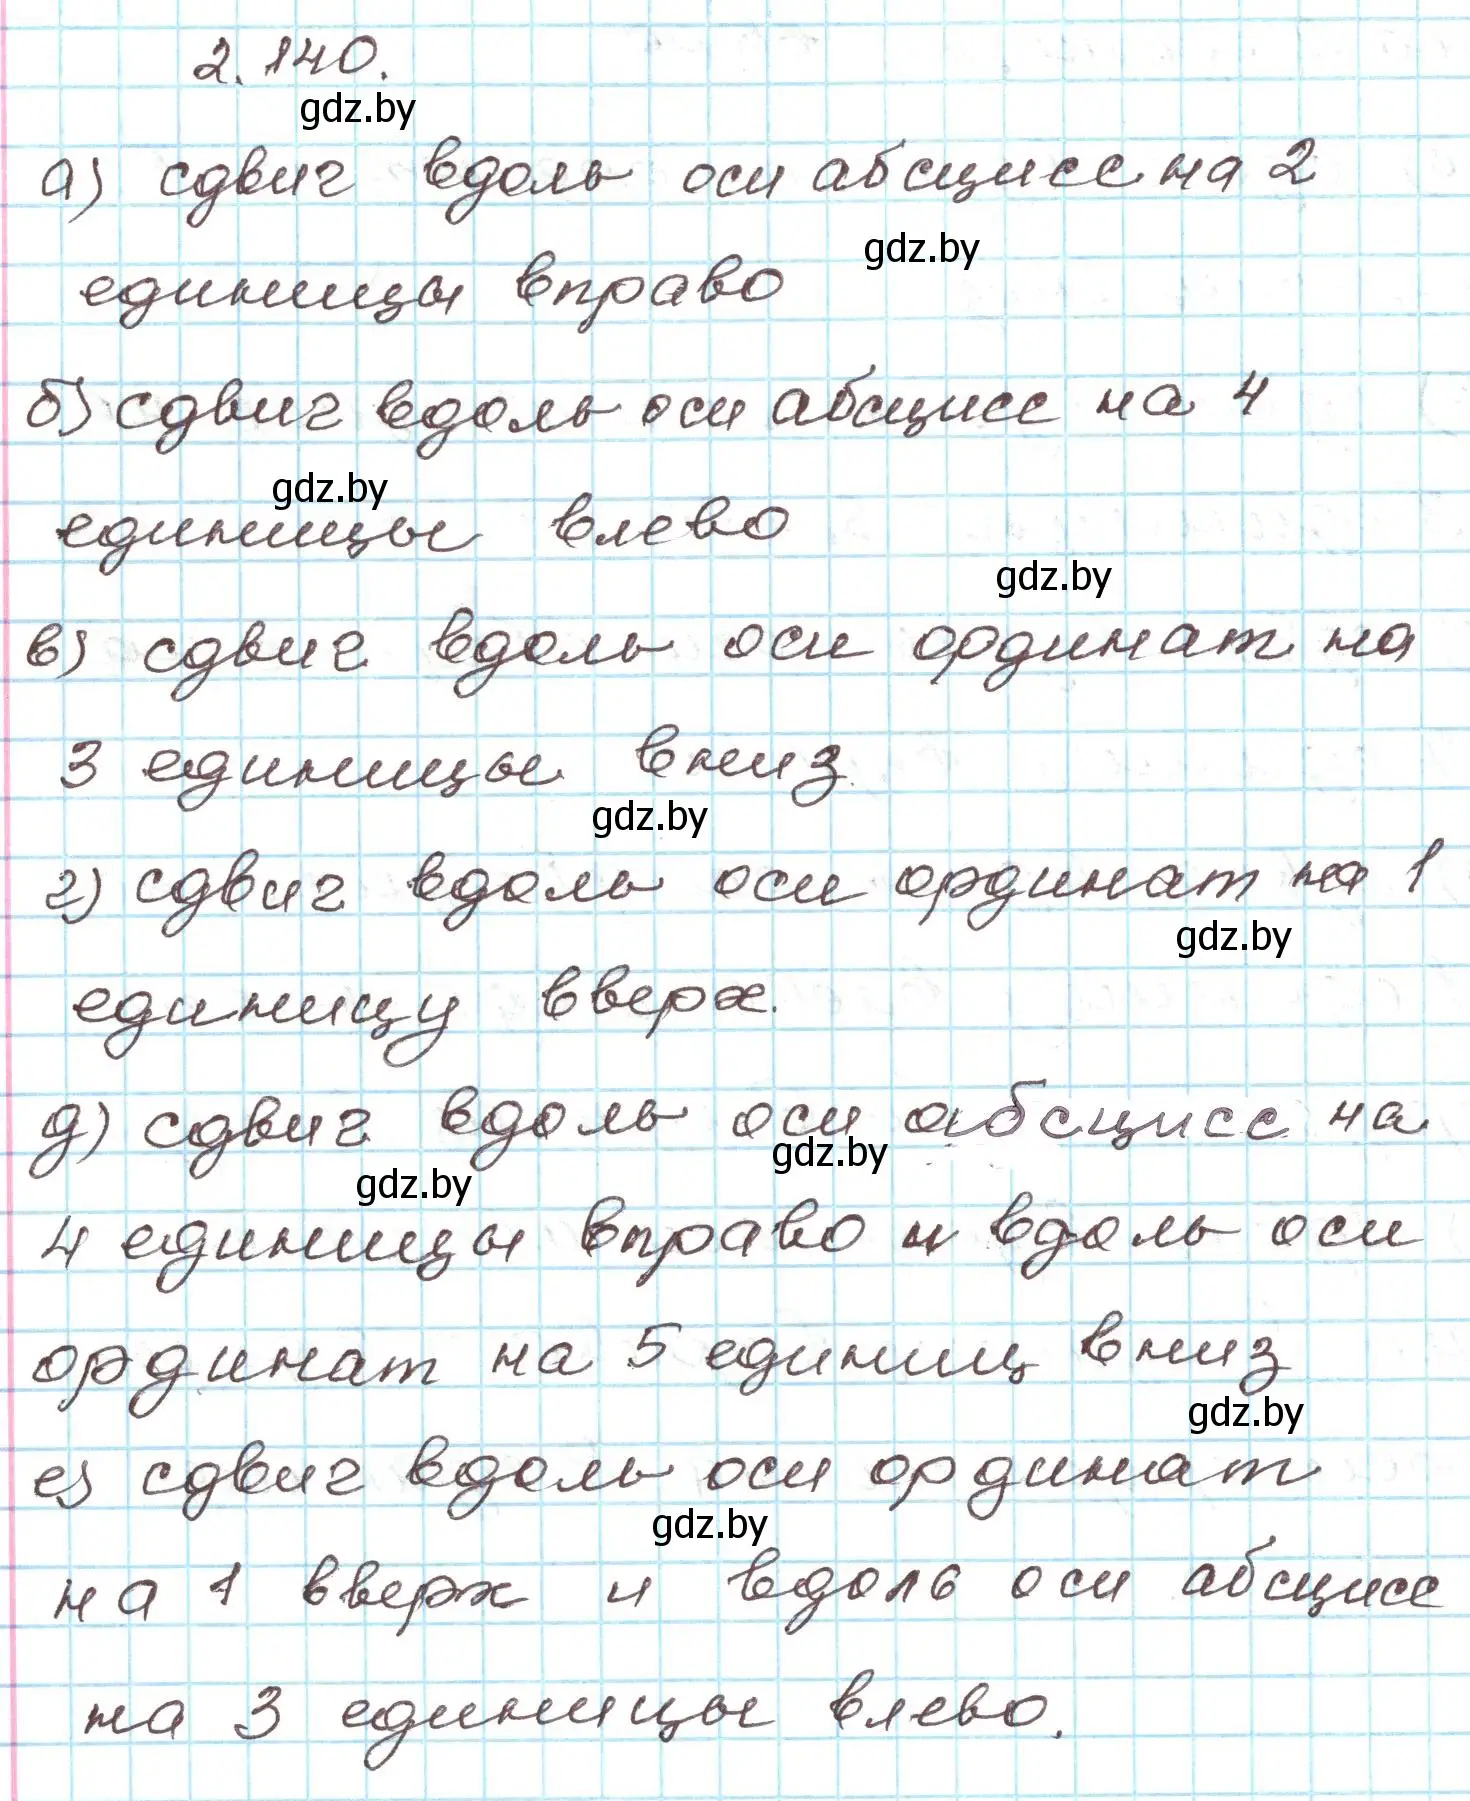 2.140.
gdz.by
а) сдвиг вдоль оси абсцисс на 2
gdz.by
единицы вправо
б) сдвиг вдоль оси абсцисс на 4
gdz.by
единицы влево
gdz.by
в) сдвиг вдоль оси ординат на
3 единицы вниз
gdz.by
г) сдвиг вдоль оси ординат на 1
gdz.by
единицу вверх.
д) сдвиг вдоль оси абсцисс на
gdz.by
gdz.by
4 единицы вправо и вдоль оси
ординат на 5 единиц вниз
gdz.by
е) сдвиг вдоль оси ординат
gdz.by
на 1 вверх и вдоль оси абсцисс
на 3 единицы влево.